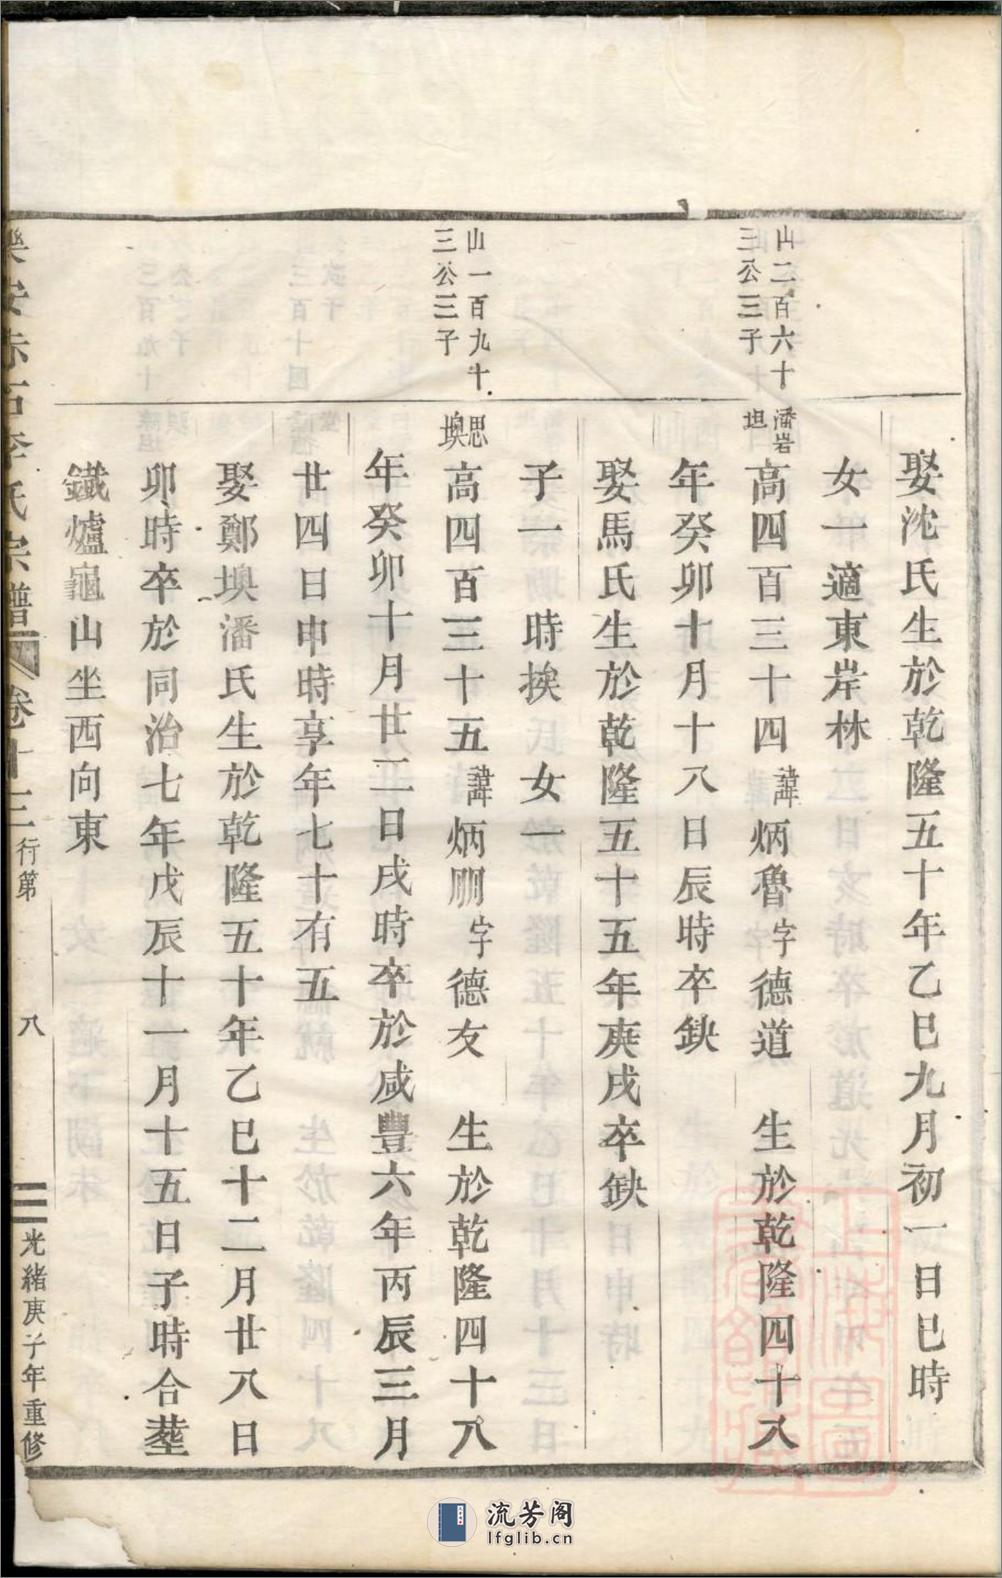 娶沈氏生於乾隆五十年乙巳九月初一日巳時
女一適東岸林
山二百六十
三公三子
潘岩
坦
高四百三十四諱炳魯字德道 生於乾隆四十八
年癸卯十月十八日辰時卒缺
娶馬氏生於乾隆五十五年庚戌卒缺
子一 時挨 女一
山一百九十
三公三子
思
墺
高四百三十五諱炳朋字德友 生於乾隆四十八
年癸卯十月廿二日戌時卒於咸豐六年丙辰三月
廿四日申時享年七十有五
娶鄭墺潘氏生於乾隆五十年乙巳十二月廿八日
卯時卒於同治七年戊辰十一月十五日子時合塟
鐵爐龜山坐西向東
樂安赤石李氏宗譜 卷十三 行第 八 光緒庚子年重修
流芳阁
lfglib.cn